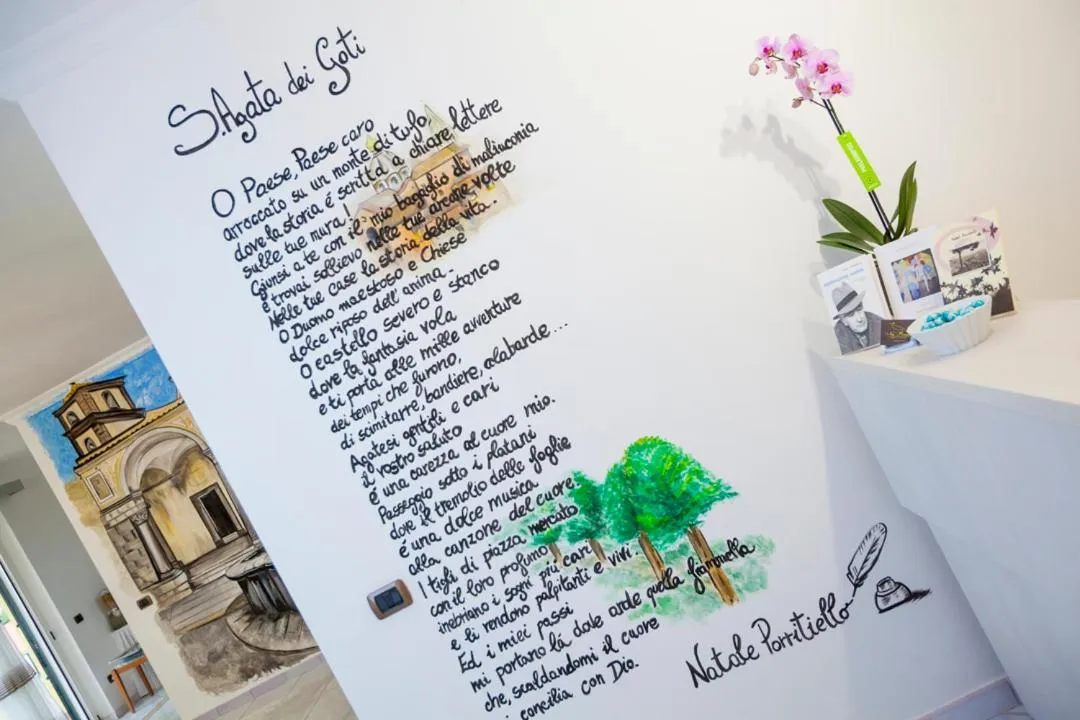 S.Agata dei Goti
O Paese, Paese caro
arroccato su un monte di tufo,
dove la storia é scritta a chiare lettere
sulle tue mura!
Giunsi a te con il mio bagaglio di malinconia
e trovai sollievo nelle tue arcane volte
Nelle tue case la storia della vita.
O Duomo maestoso e Chiese
dolce riposo dell'anima
O castello severo e stanco
dove la fantasia vola
e ti porta alle mille avventure
dei tempi che furono,
di scimitarre, bandiere, alabarde...
Agatesi gentili e cari
il vostro saluto
é una carezza al cuore mio.
Passeggio sotto i platani
dove il tremolio delle foglie
é una dolce musica
alla canzone del cuore.
I tigli di piazza mercato
con il loro profumo
inebriano i sogni più cari
e li rendono palpitanti e vivi.
Ed i miei passi
mi portano là dove arde quella fiammella
che, scaldandomi il cuore
concilia con Dio.
Natale Porritiello